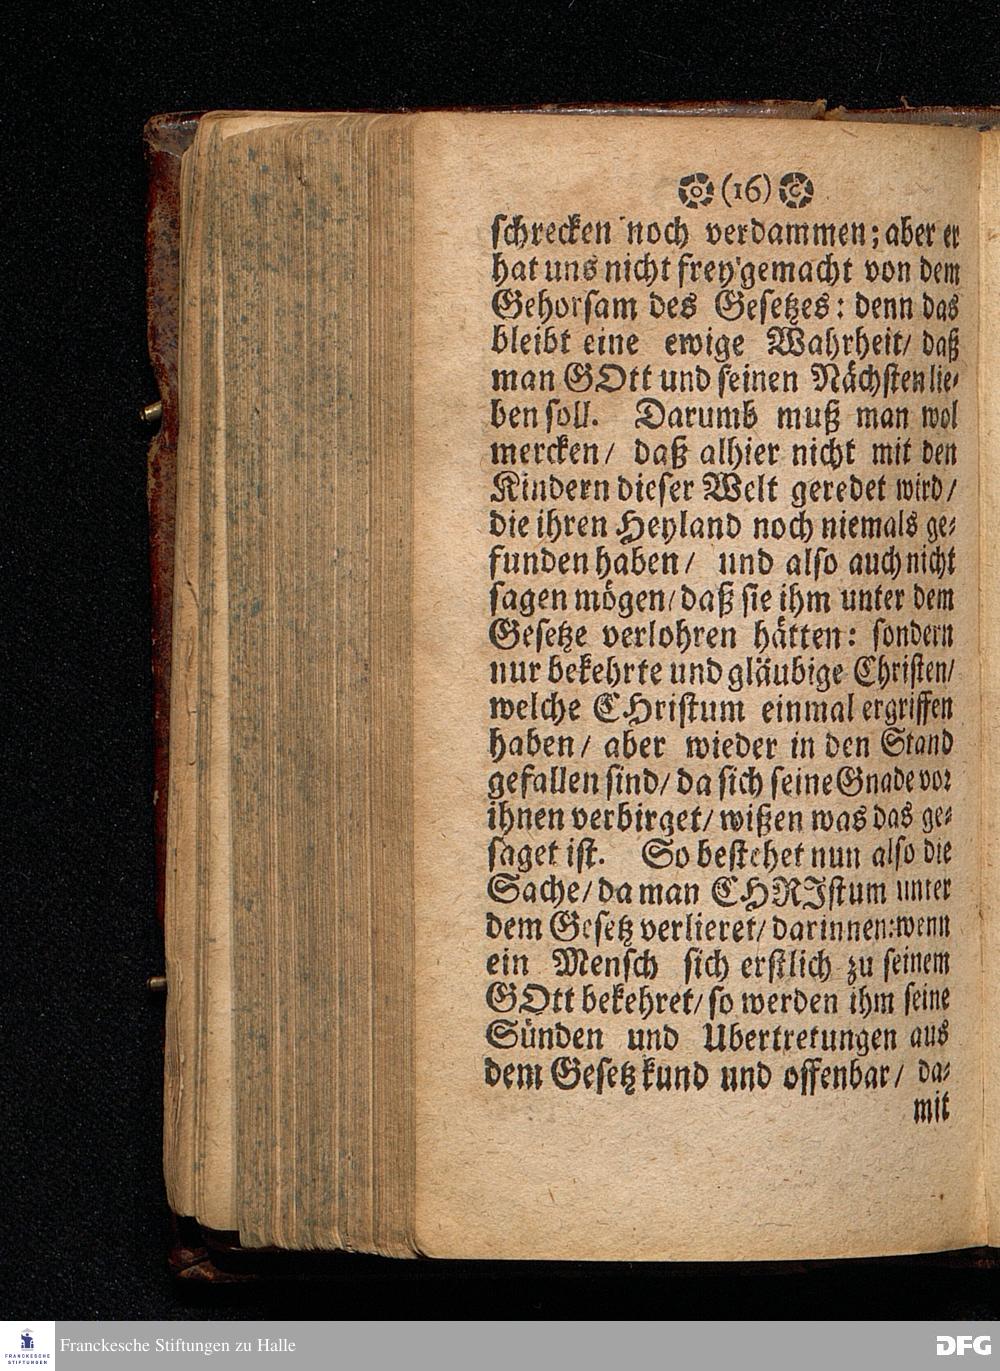 (16)
schrecken noch verdammen; aber er
hat uns nicht frey gemacht von dem
Gehorsam des Gesetzes: denn das
bleibt eine ewige Wahrheit/ daß
man GOtt und seinen Nächsten lie-
ben soll. Darumb muß man wol
mercken/ daß alhier nicht mit den
Kindern dieser Welt geredet wird/
die ihren Heyland noch niemals ge-
funden haben/ und also auch nicht
sagen mögen/ daß sie ihm unter dem
Gesetze verlohren hätten: sondern
nur bekehrte und gläubige Christen/
welche CHristum einmal ergriffen
haben/ aber wieder in den Stand
gefallen sind/ da sich seine Gnade vor
ihnen verbirget/ wißen was das ge-
saget ist. So bestehet nun also die
Sache/ da man CHRJstum unter
dem Gesetz verlieret/ darinnen: wenn
ein Mensch sich erstlich zu seinem
GOtt bekehret/ so werden ihm seine
Sünden und Ubertretungen aus
dem Gesetz kund und offenbar/ da-
mit
FRANCKESCHE
STIFTUNGEN
Franckesche Stiftungen zu Halle
DFG